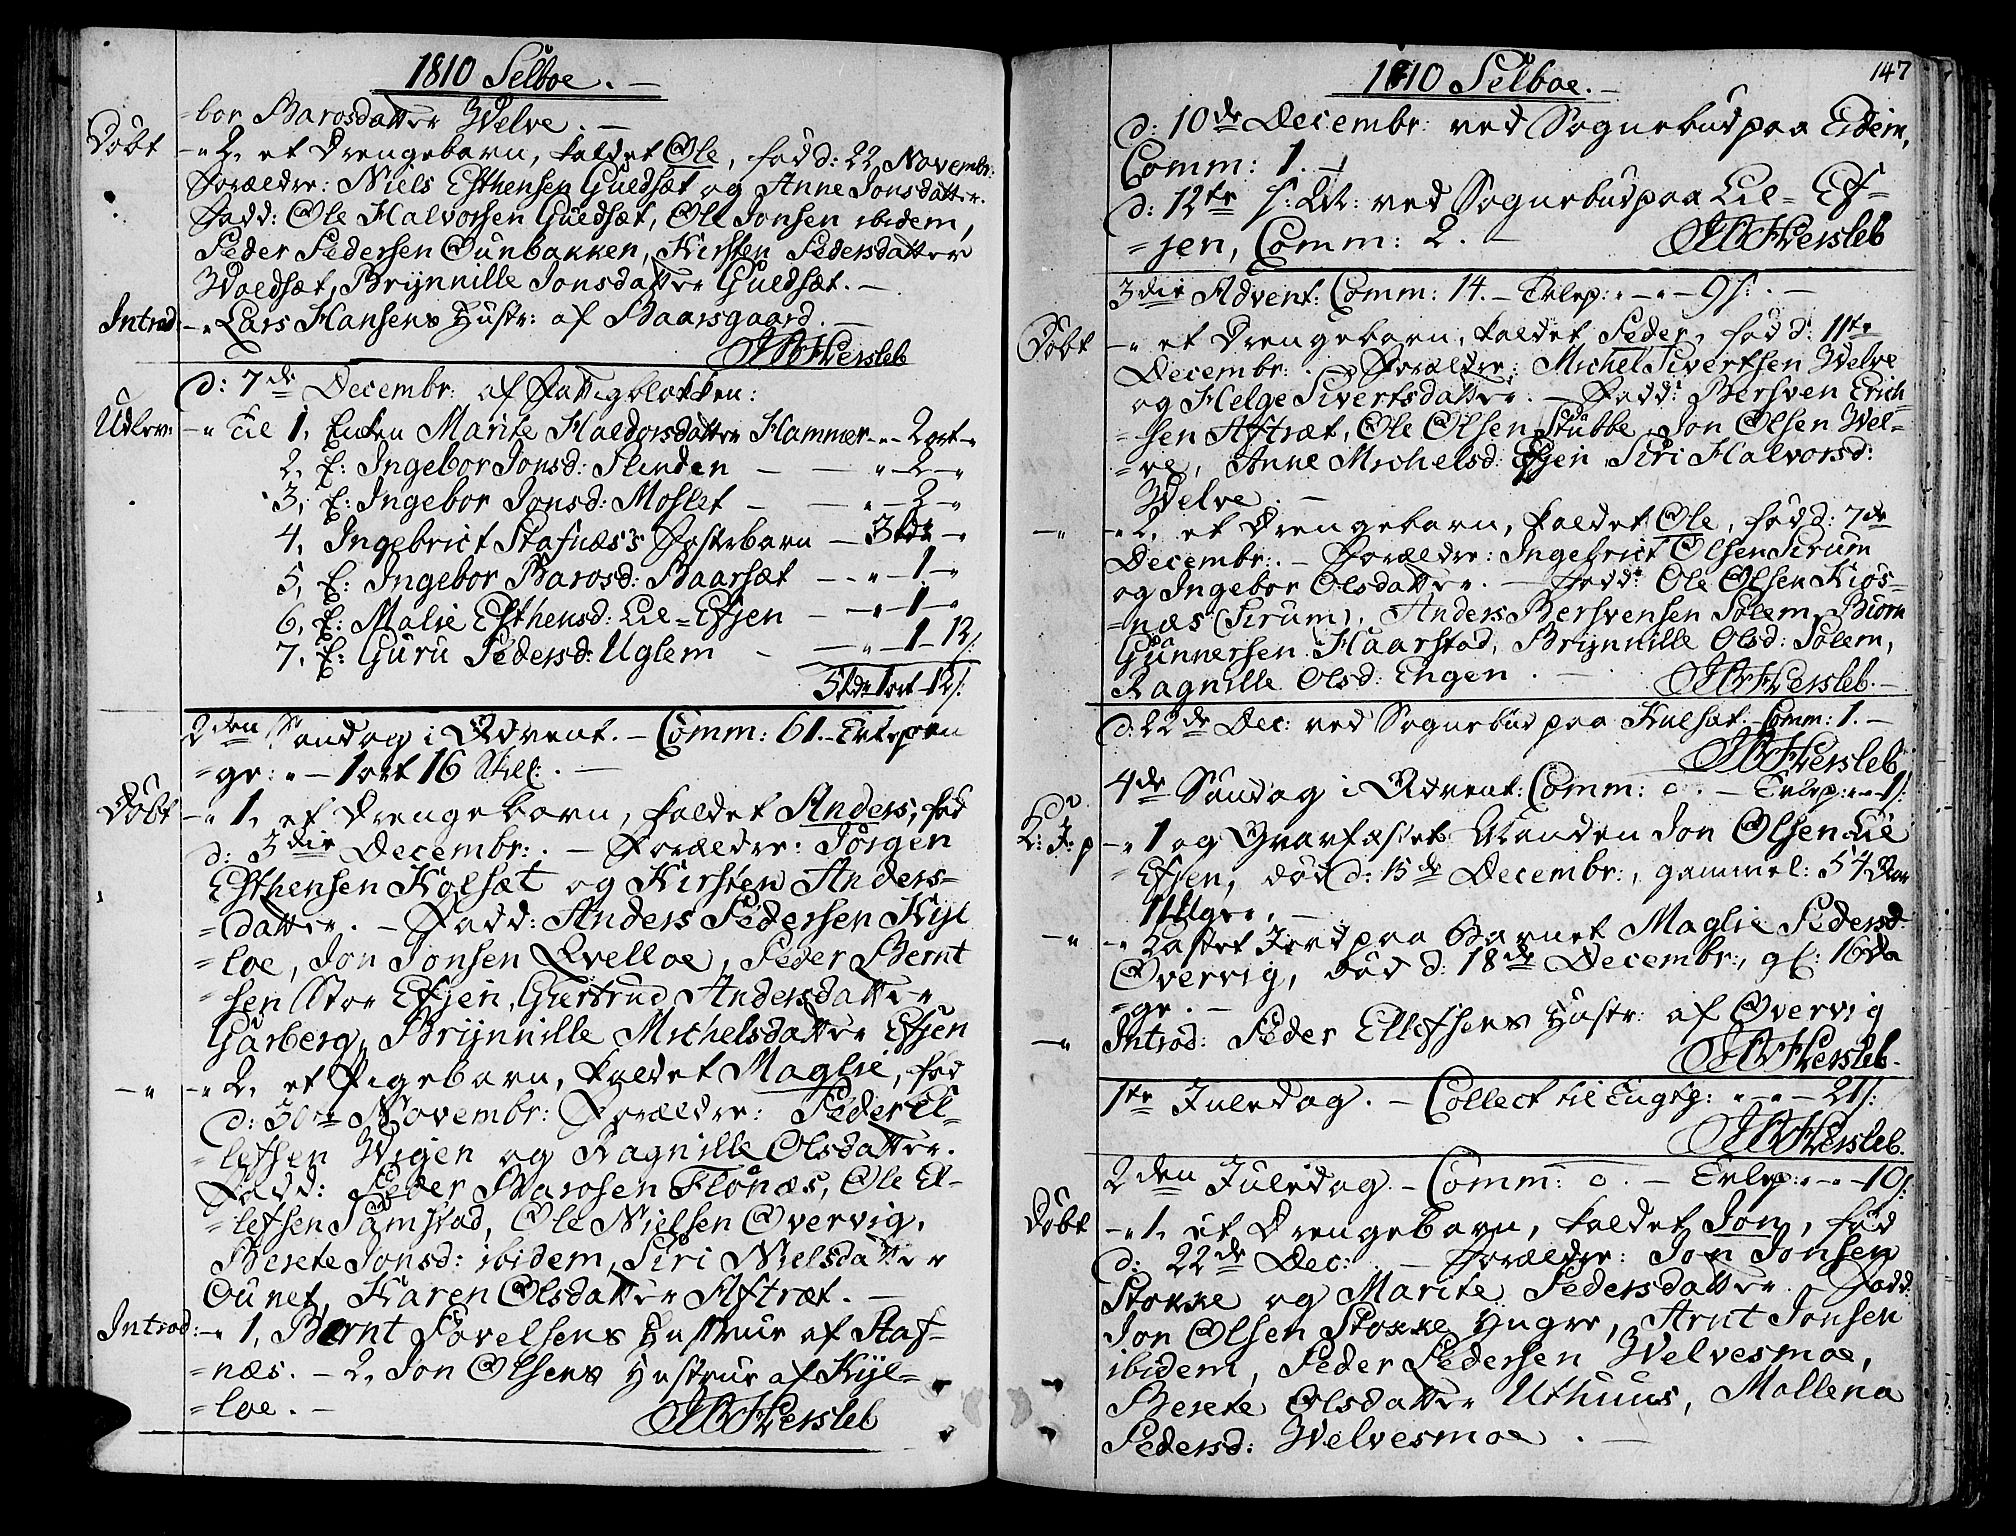 1810 Selboe. -
=bor Barosdatter Welve. -
Døbt -" 2, et Drengebarn, kaldet Ole, fød d: 22 Novembr:
Forældre: Niels Esthensen Guldsæt og Anne Jonsdatter.
Fadd: Ole Halvorsen Guldsæt, Ole Jonsen ibidem,
Peder Pedersen Ounbakken, Kirsten Pedersdatter
Woldsæt, Brynnille Jonsdatter Guldsæt. -
Introd: -" Lars Hansens Hustr: af Baarsgaard. -
Hersleb
d: 7de Decembr: af Fattigblokken:
Udlev: -" Til 1, Enken Marite Haldorsdatter Hammer -"- 2 ort "
2, E: Ingebor Jonsd: Slinden - " - 2 - "
3, E: Ingebor Jonsd: Moslet - " - 2 - "
4, Ingebrict Stafnæs's Fosterbarn - 3 rdr - "
5, E: Ingebor Barosd: Baarsæt - - " - 1 - "
6, E: Malie Esthensd: Lil=Efsen - - " - 1 - "
7, E: Guru Pedersd: Uglem - - " - 1 - 12 s:
5 rdr 1 ort 12 s:
2den Søndag i Advent. - Comm: 61. - Tvlepen
=ge: " - 1 ort 16 skill: . -
Døbt -" 1, et Drengebarn, kaldet Anders, fød
d: 3die Decembr: . - Forældre: Jørgen
Esthensen Kolsæt og Kirsten Anders-
=datter. - Fadd: Anders Pedersen Kyl
=loe, Jon Jonsen Evelloe, Peder Bernt
=sen Stor Efsen, Gurtrud Andersdatter
Garberg, Brynnille Michelsdatter Efsen
-"- -" 2, et Pigebarn, kaldet Maglie, fød
d: 30te Novembr: Forældre: Peder El-
=lefsen Wigen og Ragnille Olsdatter.
Fadd: Peder Barosen Flønæs, Ole El-
=lefsen Samstad, Ole Nielsen Overvig,
Berete Jonsd: ibidem, Siri Nielsdatter
Ounet, Karen Olsdatter Aftræt. -
Introd: -" 1, Bernt Povelsens Hustrue af Staf-
=næs. - 2, Jon Olsens Hustrue af Kyl-
=loe. - Hersleb
1810 Selboe. -
147
d: 10de Decembr: ved Sognebud paa Eidem,
Comm: 1. -
d: 12te s: M: ved Sognebud paa Lil=Ef-
=sen, Comm: 2. - Hersleb
3die Advent: Comm: 14. - Tvlep: " - " - 9 s: . -
Døbt -" et Drengebarn, kaldet Peder, fød d: 11te
Decembr: . - Forældre: Michel Sivertsen Welve
og Helge Sivertsdatter. - Fadd: Bersven Erich-
=sen Aftræt, Ole Olsen Stubbe, Jon Olsen Wel-
=ve, Anne Michelsd: Efsen, Siri Halvorsd:
Welve. -
-" -" 2, et Drengebarn, kaldet Ole, fød d: 7de
Decembr: . - Forældre: Ingebrict Olsen Sirum
og Ingebor Olsdatter. - Fadd: Ole Olsen Kiøs-
=næs (Sirum), Anders Bersvensen Solem, Biørn
Gunnersen Haarstad, Brynnille Olsd: Solem,
Ragnille Olsd: Engen . - Hersleb. -
d: 22de Dec: ved Sognebud paa Kulsæt. - Comm: 1. -
Hersleb
4de Søndag i Advent: Comm: 0. - Tvlep: " - 1 s:
K: J: p -" 1 og Gvarfæstet Manden Jon Olsen Lil
=Efsen, død d: 15de Decembr: , gammel: 54 Aar
11 Uger. -
-" -" Kastet Jord paa Barnet Maglie Pedersd:
Overvig, død d: 18de Decembr: , gl: 16 da
=ge. -
-" Introd: Peder Ellefsens Hustr: af Overvig
Hersleb.
1te Juledag. - Collect til Eugtp: " - " - 21 s:
Hersleb.
2den Juledag. - Comm: 0. - Tvlep: " - " - 10 s:
Døbt -" 1, et Drengebarn, kaldet Jon, fød
d: 22de Dec: . - Forældre: Jon Jonsen
Stokke og Marite Pedersdatter. - Fadd:
Jon Olsen Stokke Yngre, Arnt Jonsen
ibidem, Peder Pedersen Welvesmoe,
Berete Olsdatter Uthuus, Mallena
Pedersd: Welvesmoe . -